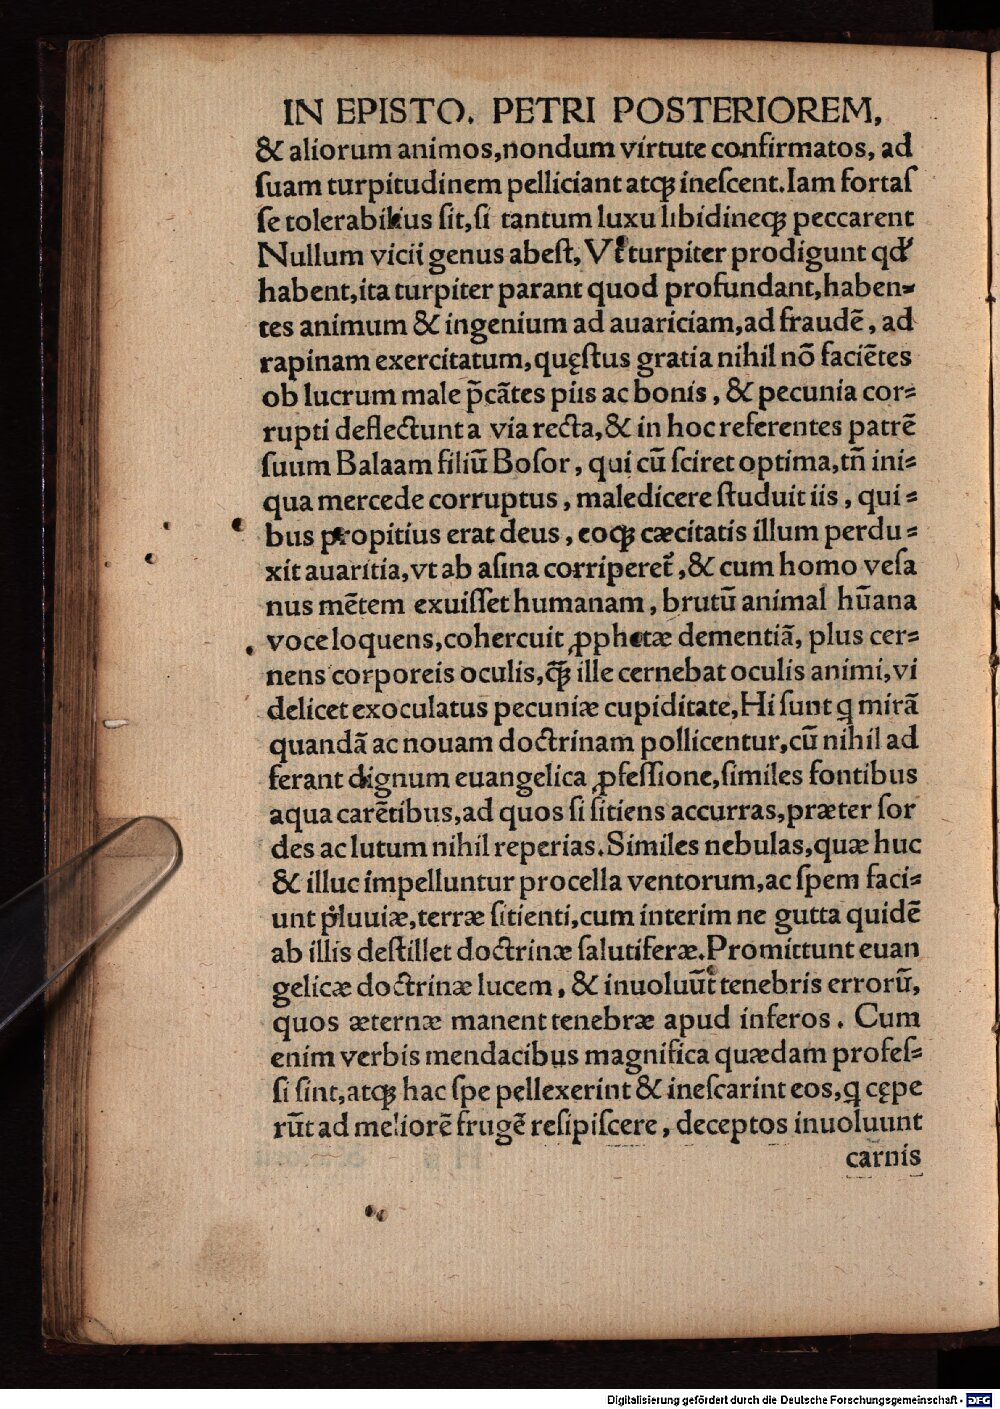 IN EPISTO. PETRI POSTERIOREM,
& aliorum animos,nondum virtute confirmatos, ad
ſuam turpitudinem pelliciant atqꝫ ineſcent.Iam fortaſ
ſe tolerabilius ſit,ſi tantum luxu libidineqꝫ peccarent
Nullum vicii genus abeſt, Vt turpiter prodigunt qd'
habent,ita turpiter parant quod profundant,haben⸗
tes animum & ingenium ad auariciam,ad fraudē, ad
rapinam exercitatum,quęſtus gratia nihil nō faciētes
ob lucrum male p̄cātes piis ac bonis, & pecunia cor⸗
rupti deflectunt a via recta,& in hoc referentes patrē
ſuum Balaam filiū Boſor, qui cū ſciret optima,tñ ini⸗
qua mercede corruptus, maledicere ſtuduit iis, qui⸗
bus propitius erat deus, eoqꝫ cæcitatis illum perdu⸗
xit auaritia,vt ab aſina corriperet̃,& cum homo veſa
nus mētem exuiſſet humanam, brutū animal hūana
voce loquens,cohercuit ꝓphetæ dementiā, plus cer⸗
nens corporeis oculis,q̄ꝫ ille cernebat oculis animi,vi
delicet exoculatus pecuniæ cupiditate,Hi ſunt q mirā
quandā ac nouam doctrinam pollicentur,cū nihil ad
ferant dignum euangelica ꝓfeſſione,ſimiles fontibus
aqua carētibus,ad quos ſi ſitiens accurras,præter ſor
des ac lutum nihil reperias.Similes nebulas,quæ huc
& illuc impelluntur procella ventorum,ac ſpem faci⸗
unt pluuiæ,terræ ſitienti,cum interim ne gutta quidē
ab illis deſtillet doctrinæ ſalutiferæ.Promittunt euan
gelicæ doctrinæ lucem, & inuoluūt tenebris errorū,
quos æternæ manent tenebræ apud inferos. Cum
enim verbis mendacibus magnifica quædam profeſ⸗
ſi ſint,atqꝫ hac ſpe pellexerint & ineſcarint eos,q cępe
rūt ad meliorē frugē reſipiſcere, deceptos inuoluunt
carnis
Digitalisierung gefördert durch die Deutsche Forschungsgemeinschaft - DFG